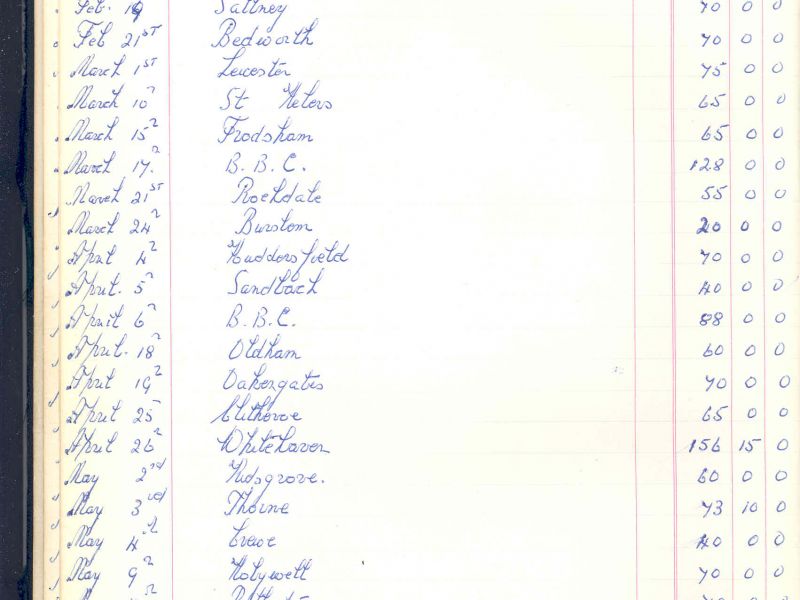 Feb. 19 Saltney 70 0 0
Feb 21ST Bedworth 70 0 0
March 1ST Leicester 75 0 0
March 10 St Helens 65 0 0
March 15 Frodsham 65 0 0
March 17 B.B.C. 128 0 0
March 21ST Rochdale 55 0 0
March 24 Burslem 20 0 0
April 4 Huddersfield 70 0 0
April. 5 Sandbach 40 0 0
April 6 B.B.C. 88 0 0
April. 18 Oldham 60 0 0
April 19 Oakengates 70 0 0
April 25 Clitheroe 65 0 0
April 26 Whitehaven 156 15 0
May 2nd Kidsgrove. 60 0 0
May 3rd Thorne 73 10 0
May 4 Crewe 40 0 0
May 9 Holywell 70 0 0